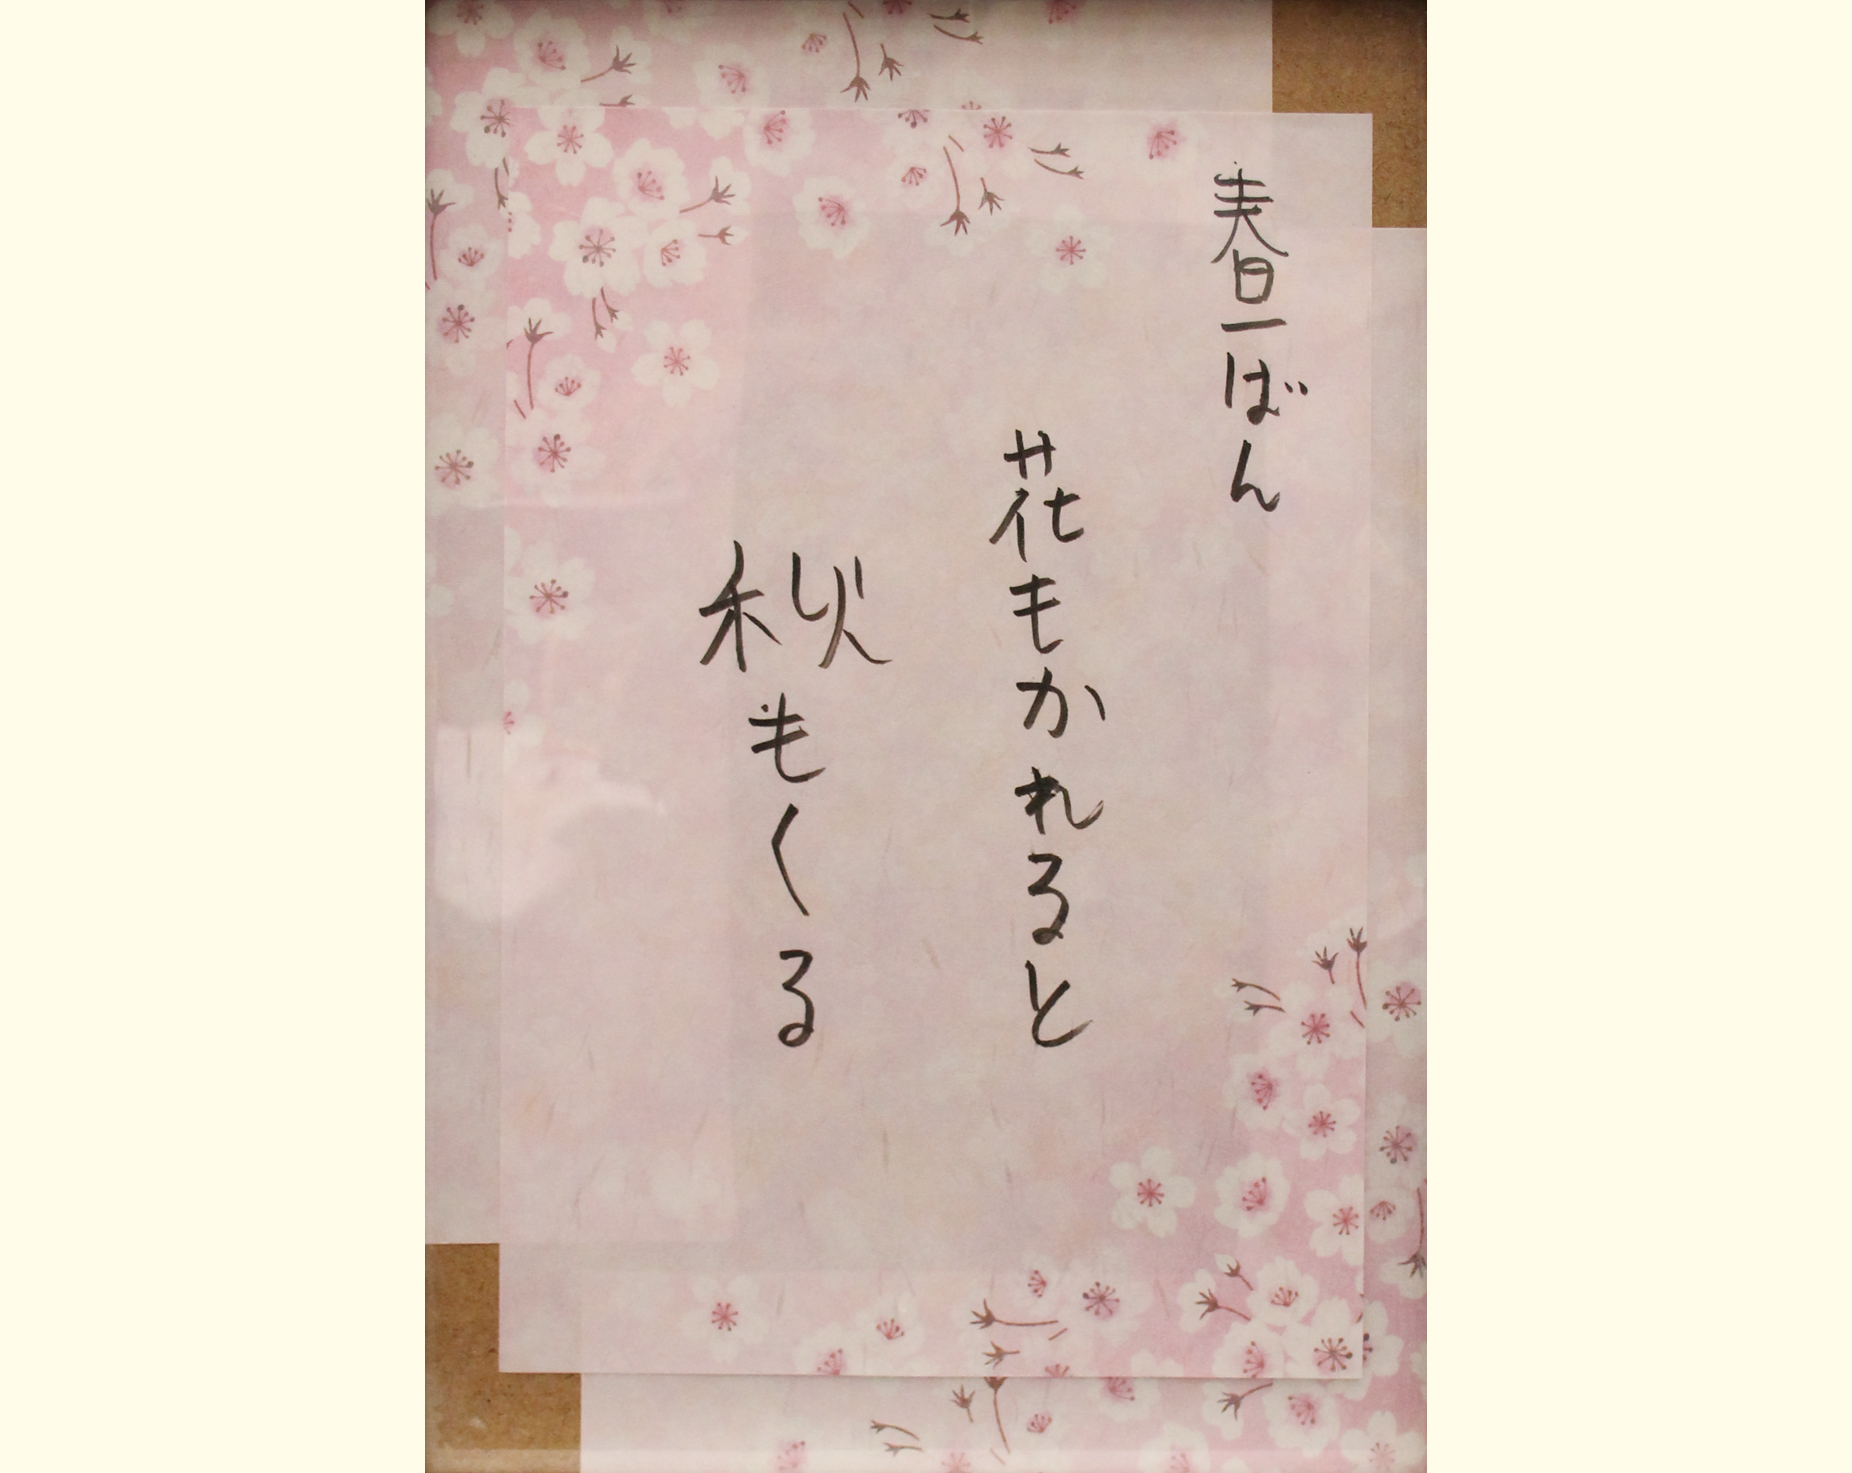 春一ばん
花もかれると
秋もくる